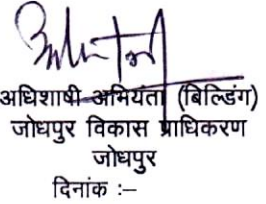 अधिशाषी अभियंता (बिल्डिंग)
जोधपुर विकास प्राधिकरण
जोधपुर
दिनांक :–